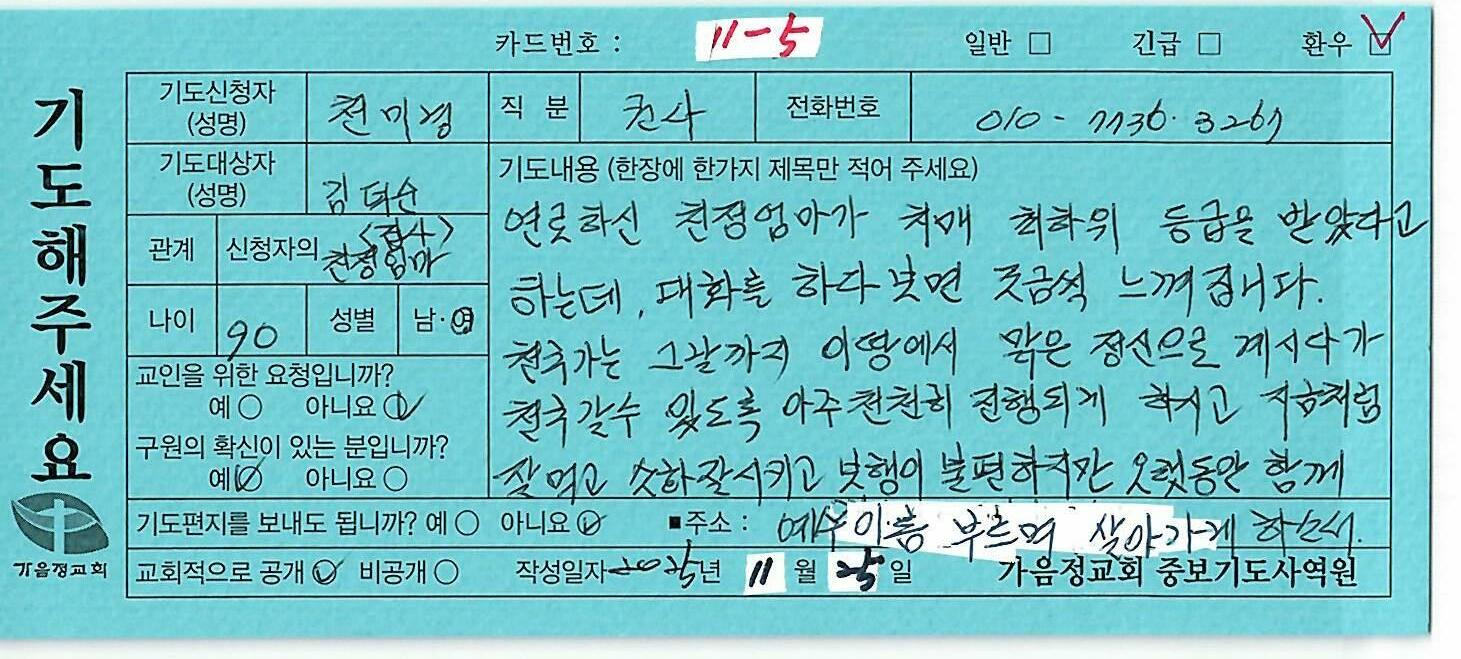 카드번호 : 11-5 일반 □ 긴급 □ 환우 ☑
기도해주세요
기도신청자 (성명) 천미경 직 분 권사 전화번호 010-7736.3267
기도대상자 (성명) 김덕순 <집사>
관계 신청자의 친정엄마
나이 90 성별 남·여
교인을 위한 요청입니까?
예 ○ 아니요 ☑
구원의 확신이 있는 분입니까?
예 ☑ 아니요 ○
기도내용 (한장에 한가지 제목만 적어 주세요)
연로하신 친정엄마가 치매 최하위 등급을 받았다고
하는데, 대화를 하다보면 조금씩 느껴집니다.
천국가는 그날까지 이땅에서 맑은 정신으로 계시다가
천국갈수 있도록 아주 천천히 진행되게 하시고 지금처럼
잘먹고 소화잘시키고 보행이 불편하지만 오랫동안 함께
예수이름 부르며 살아가게 하소서.
기도편지를 보내도 됩니까? 예 ○ 아니요 ☑ ■주소 :
교회적으로 공개 ☑ 비공개 ○ 작성일자 2025년 11월 25일 가음정교회 중보기도사역원
가음정교회